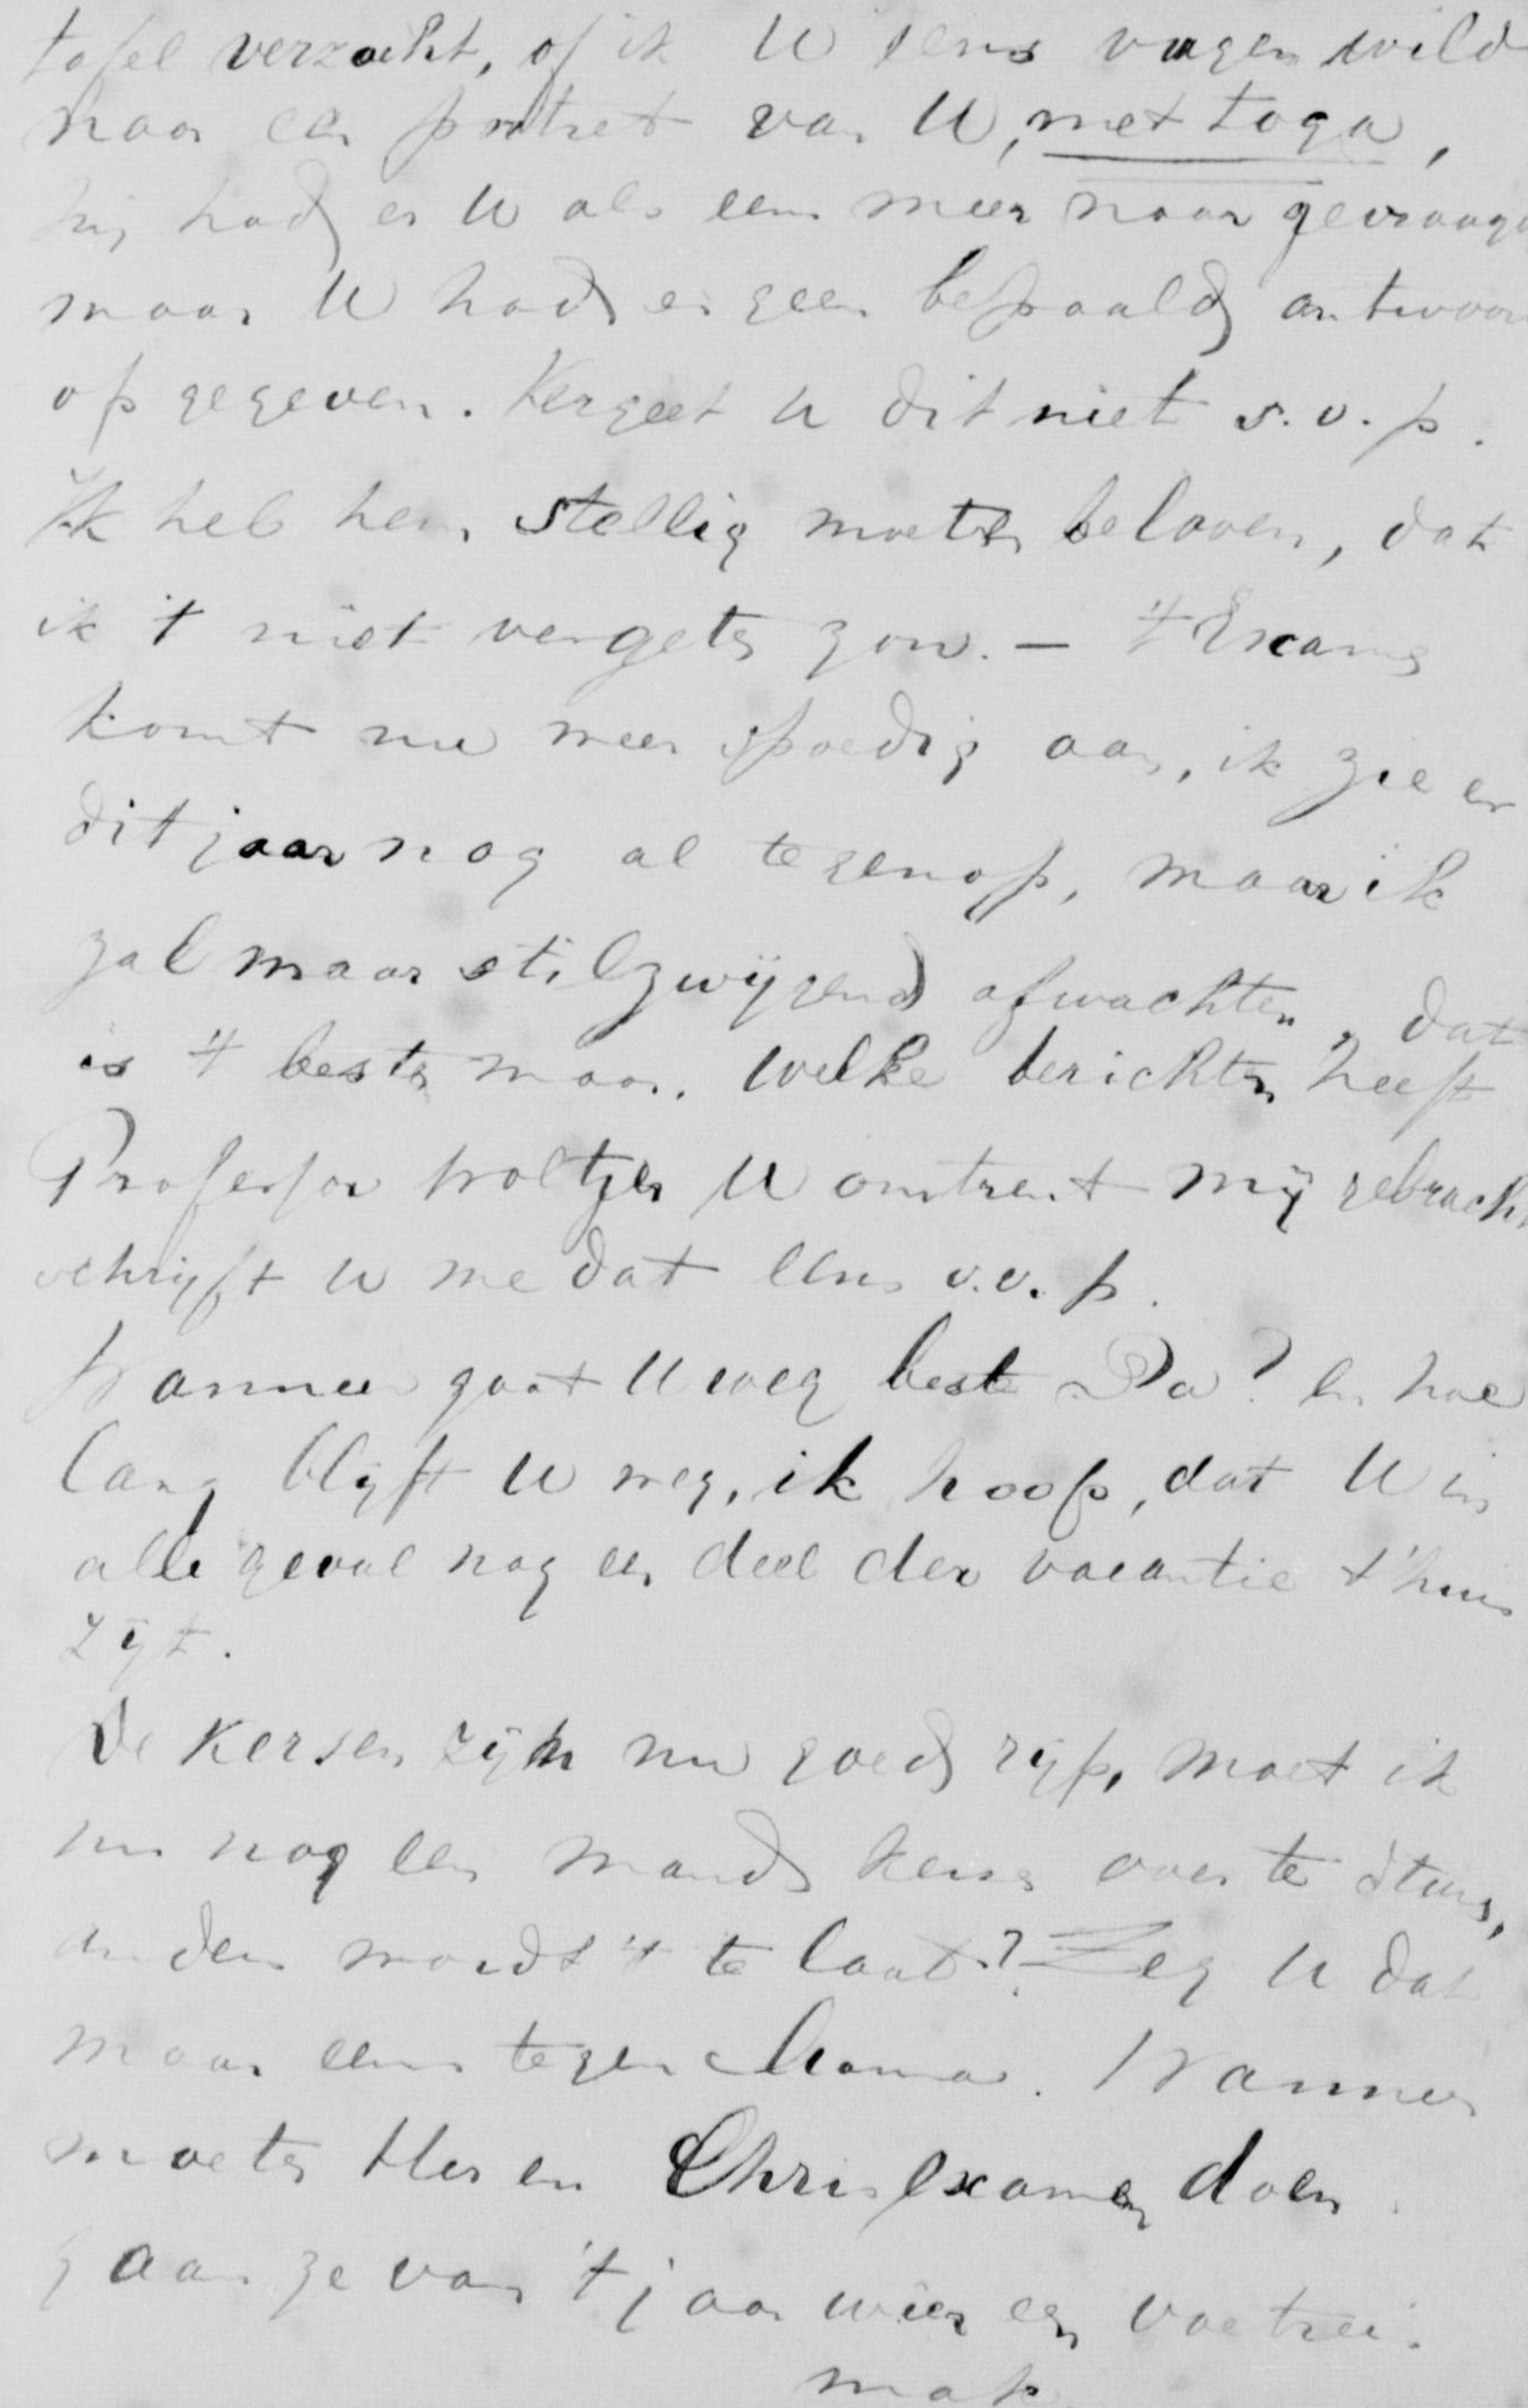 tafel verzocht, of ik U eens vragen wild
naar een portret van U, met toga,
hij had er U als eens meer naar gevraagd
maar U had er geen bepaald antwoor
op gegeven. Vergeet U dit niet s.v.p.
Ik heb hem stellig moeten beloven, dat
ik 't niet vergeten zou. — 't Examen
komt nu weer spoedig aan, ik zie er
dit jaar nog al tegenop, maar ik
zal maar stilzwijgend afwachten, dat
is 't beste maar. Welke berichten heeft
Professor Woltjer U omtrent mij gebracht
schrijft U me dat eens s.v.p.
Wanneer gaat U weg beste Pa? en hoe
lang blijft U weg, ik hoop, dat U in
alle geval nog een deel der vacantie t'huis
zijt.
De Kersen zijn nu goed rijp, moet ik
nu nog een mand kersen over te sturen,
anders wordt 't te laat? Zeg U dat
maar eens tegen Mama. Wanneer
moeten Her en Chris examen doen
gaan ze van 't jaar weer een voetrei.
mak